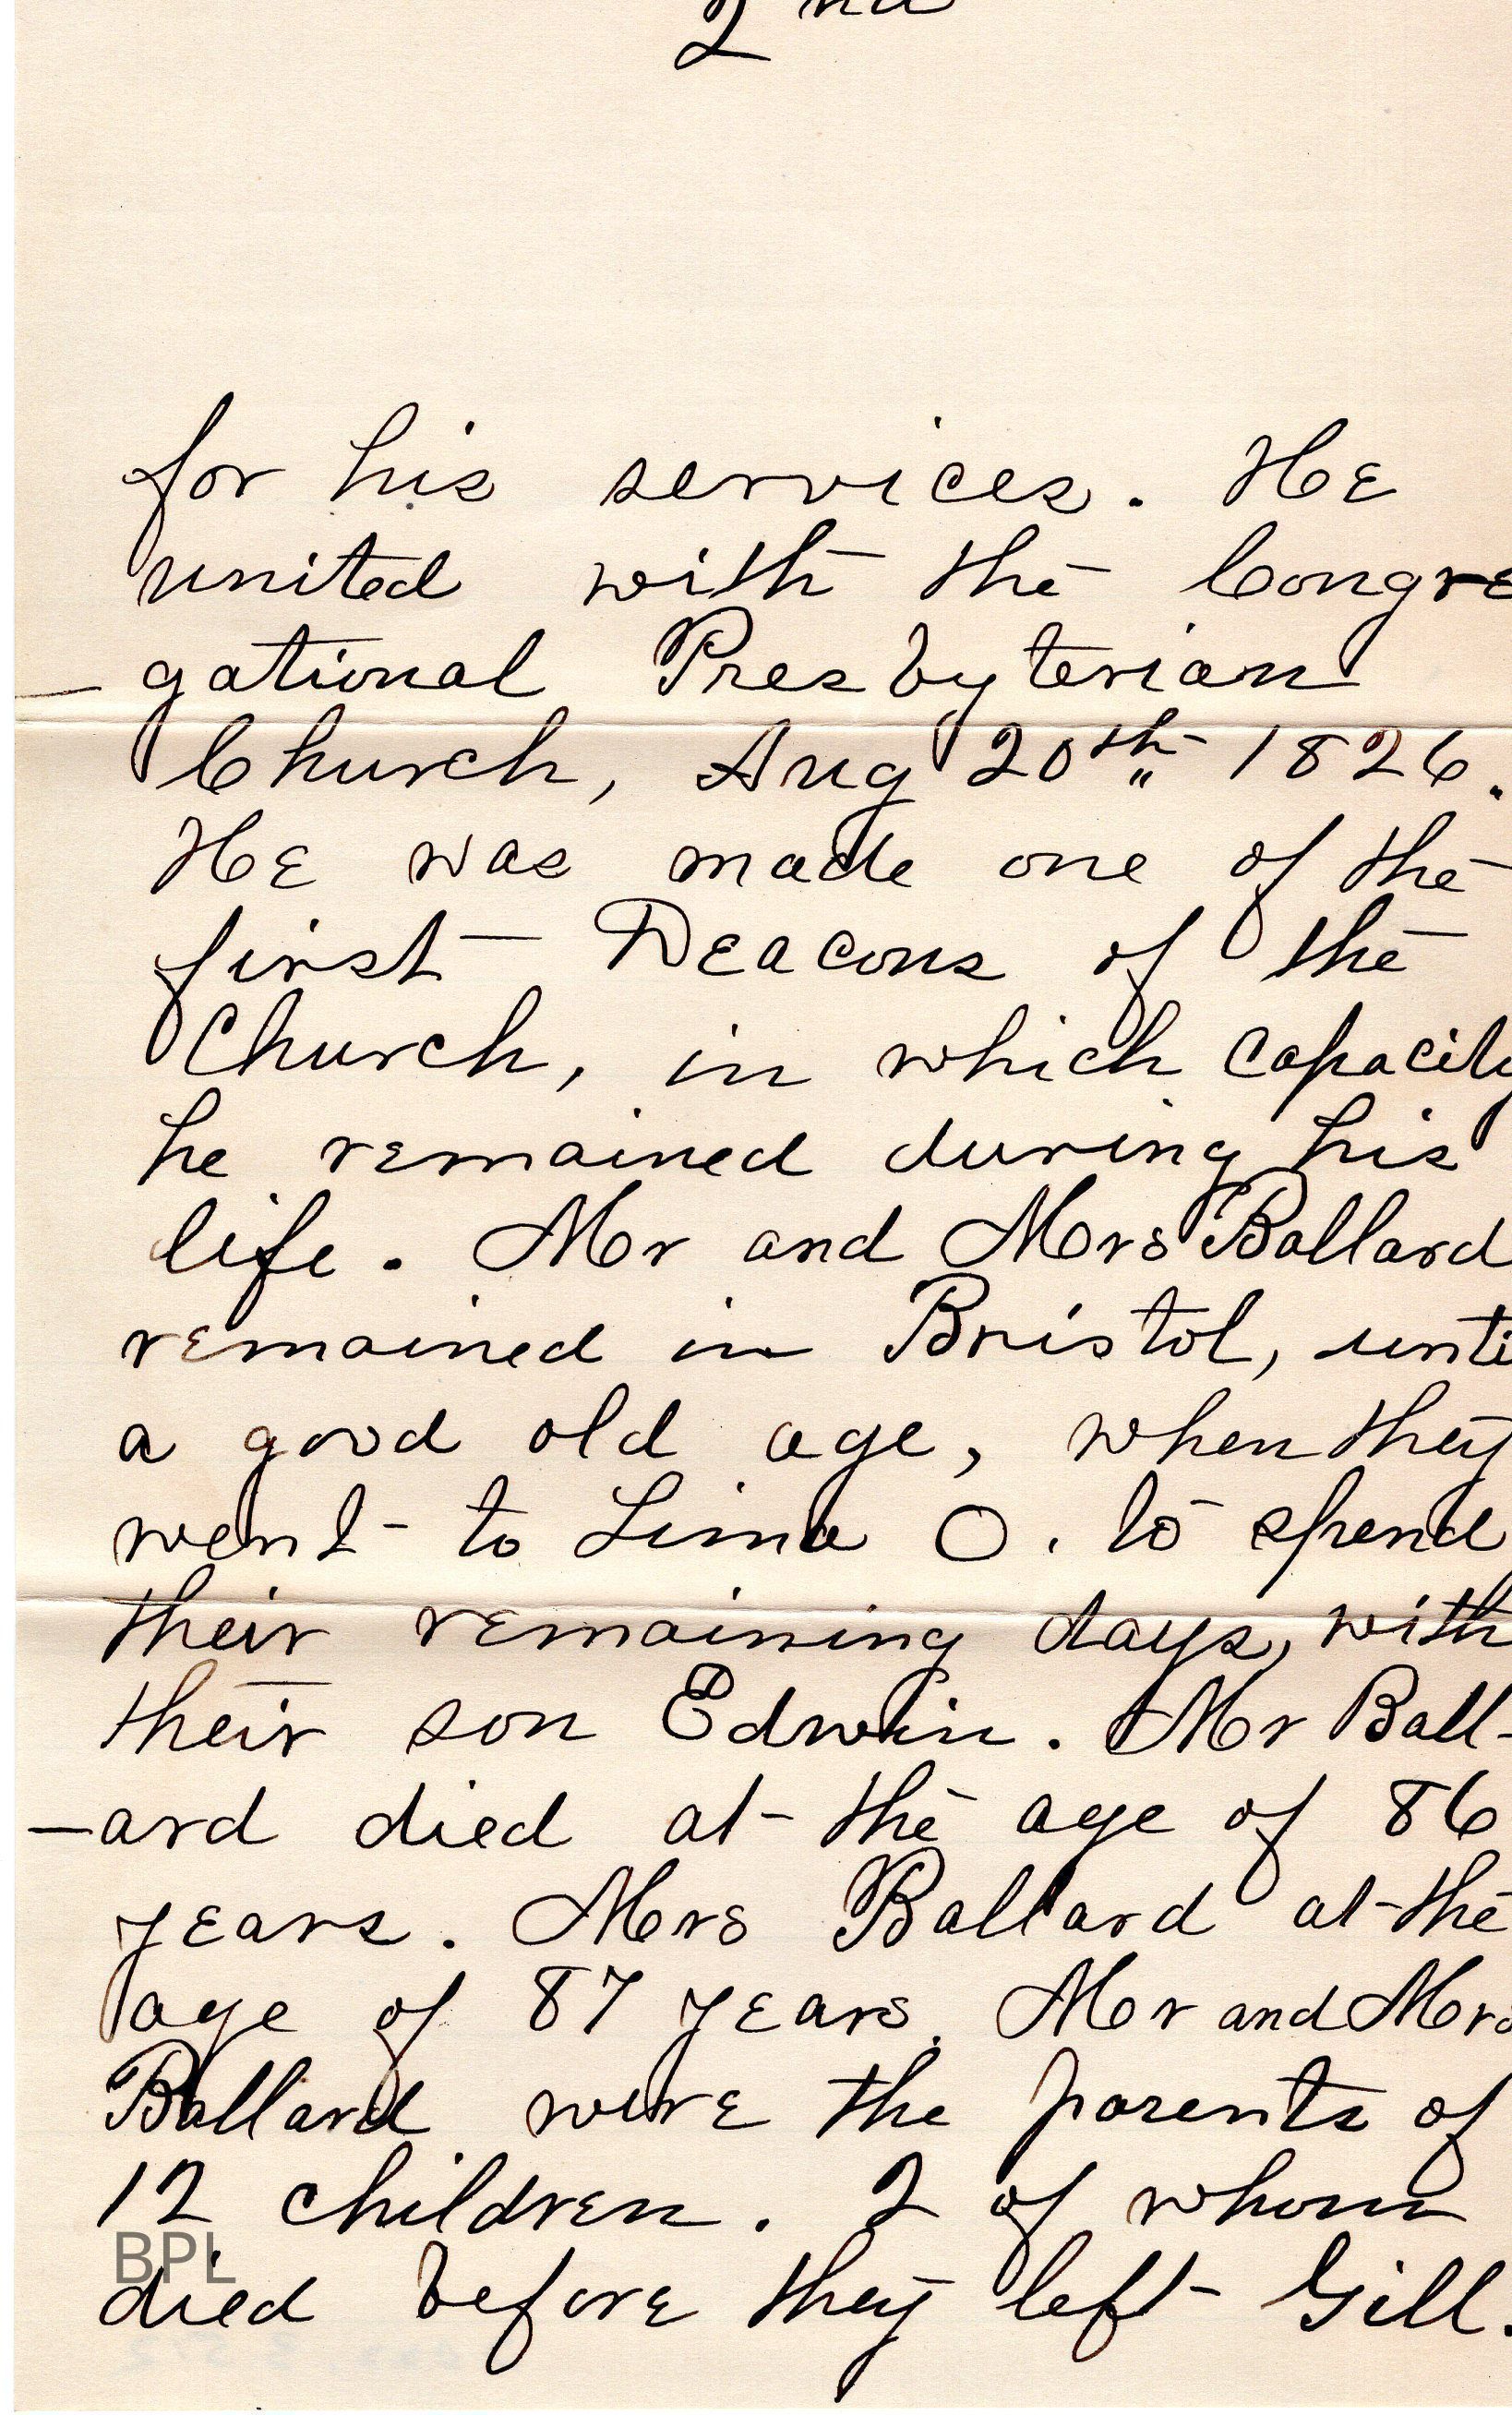 2nd
for his services. He
united with the Congre
-gational Presbyterian
Church, Aug 20th 1826.
He was made one of the
first Deacons of the
Church, in which capacity
he remained during his
life. Mr and Mrs Ballard
remained in Bristol, unti
a good old age, when they
went to Lima O. to spend
their remaining days, with
their son Edwin. Mr Ball-
-ard died at the age of 86
years. Mrs Ballard at the
age of 87 years. Mr and Mrs
Ballard were the parents of
12 children. 2 of whom
died before they left Gill.
BPL